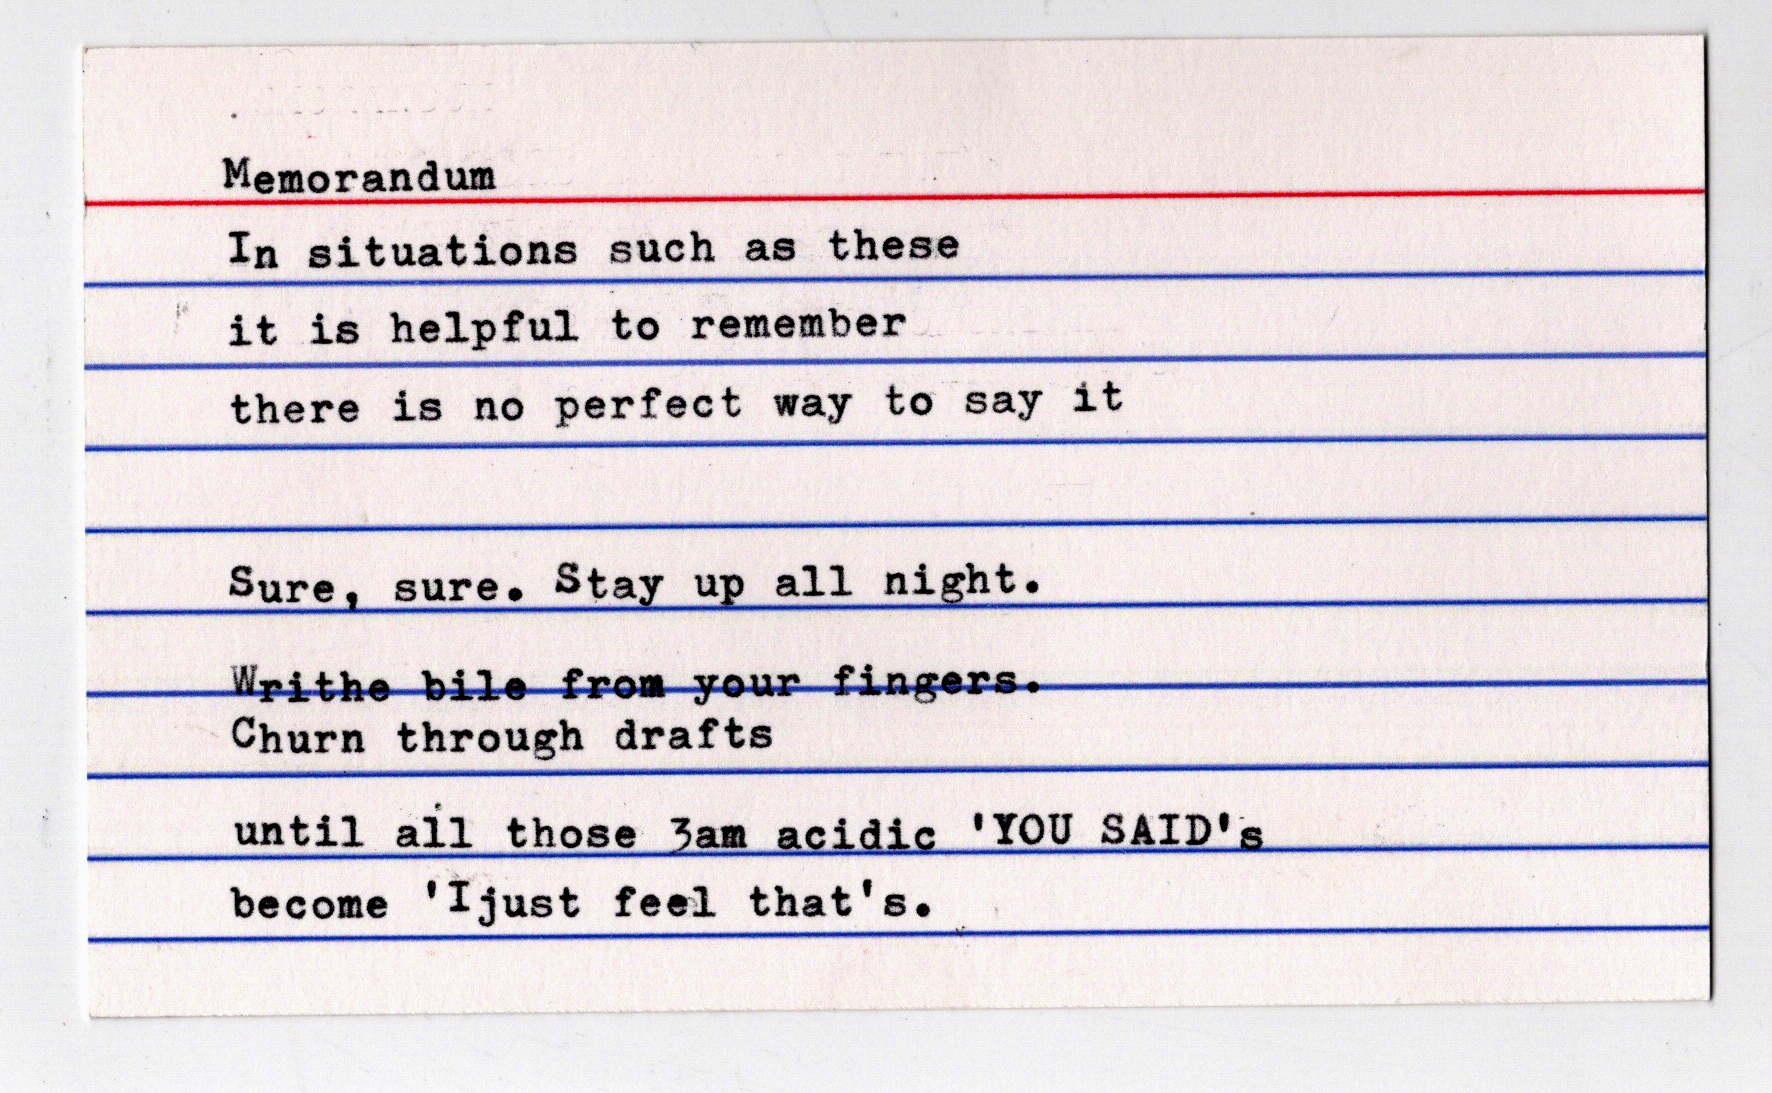 Memorandum
In situations such as these
it is helpful to remember
there is no perfect way to say it
Sure, sure. Stay up all night.
Writhe bile from your fingers.
Churn through drafts
until all those 3am acidic 'YOU SAID's
become 'Ijust feel that's.